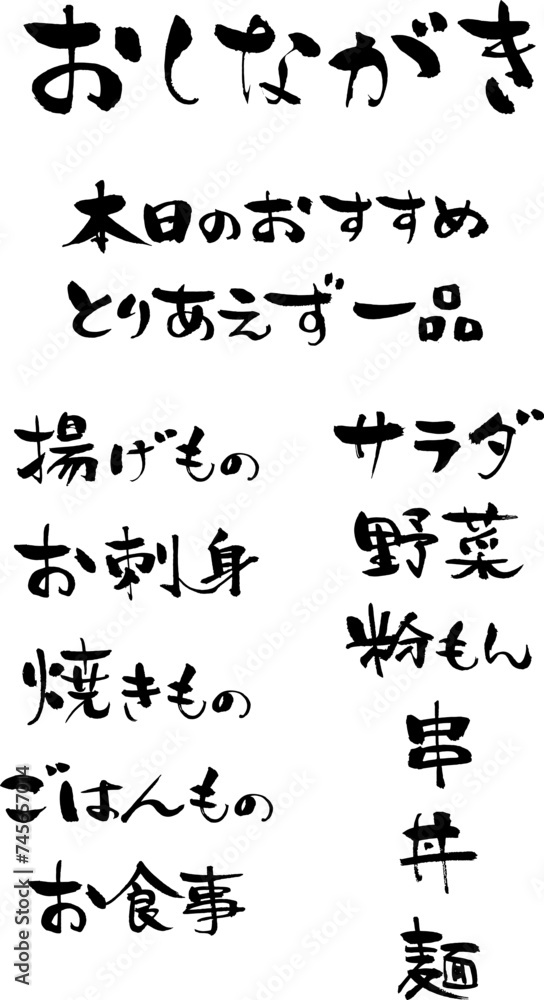 おしながき
本日のおすすめ
とりあえず一品
揚げもの
お刺身
焼きもの
ごはんもの
お食事
サラダ
野菜
粉もん
串
丼
麺
Adobe Stock | #745657014